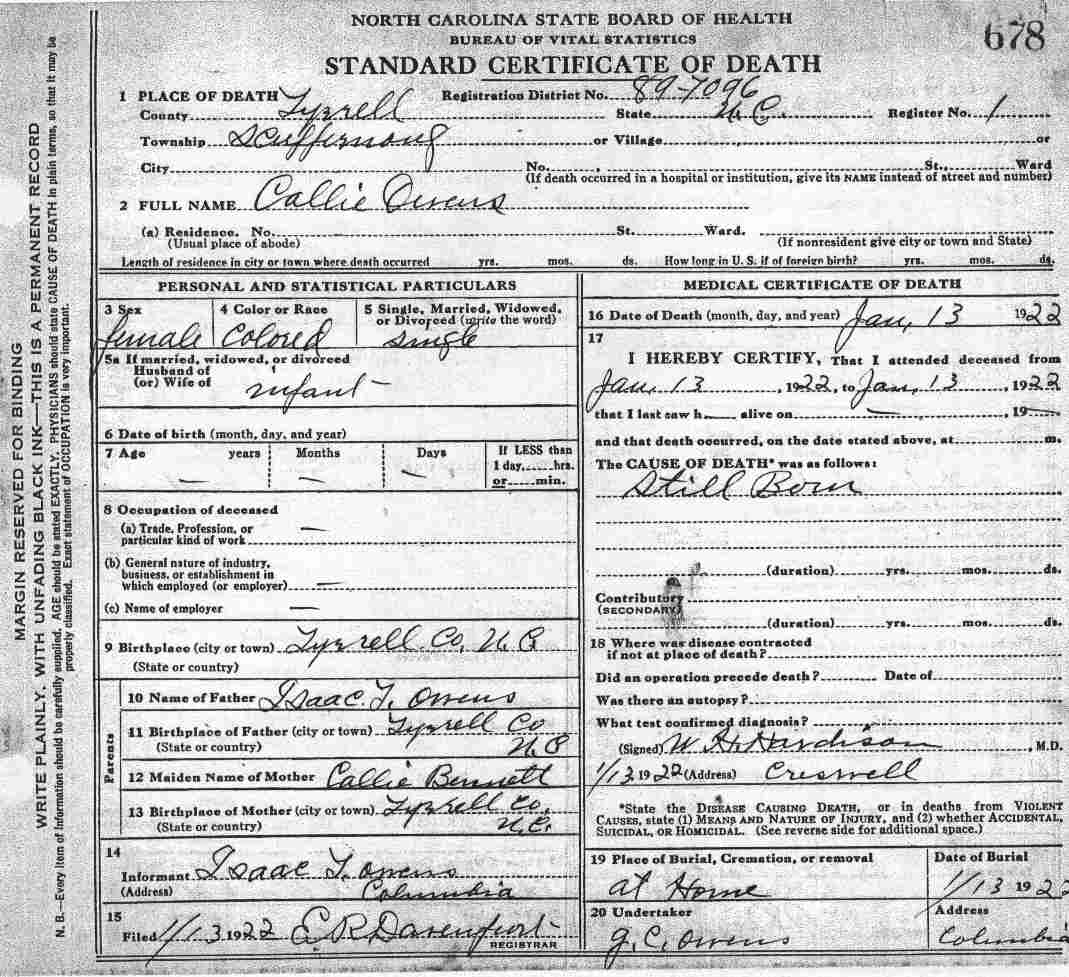 NORTH CAROLINA STATE BOARD OF HEALTH
BUREAU OF VITAL STATISTICS
678
STANDARD CERTIFICATE OF DEATH
1 PLACE OF DEATH Registration District No. 89-7096
County Tyrrell State N.C. Register No. 1
Township Scuppernong or Village or
City No. , St., Ward
(If death occurred in a hospital or institution, give its NAME instead of street and number)
2 FULL NAME Callie Owens
(a) Residence. No. St. Ward.
(Usual place of abode) (If nonresident give city or town and State)
Length of residence in city or town where death occurred yrs. mos. ds. How long in U. S. if of foreign birth? yrs. mos. ds.
PERSONAL AND STATISTICAL PARTICULARS
3 Sex 4 Color or Race 5 Single, Married, Widowed,
or Divorced (write the word)
female Colored single
5a If married, widowed, or divorced
Husband of
(or) Wife of infant -
6 Date of birth (month, day, and year)
7 Age years Months Days If LESS than
1 day,......hrs.
or......min.
— — —
8 Occupation of deceased
(a) Trade, Profession, or —
particular kind of work
(b) General nature of industry,
business, or establishment in
which employed (or employer) —
(c) Name of employer —
9 Birthplace (city or town) Tyrrell Co, N.C
(State or country)
Parents
10 Name of Father Isaac. T. Owens
11 Birthplace of Father (city or town) Tyrrell Co
(State or country) N.C
12 Maiden Name of Mother Callie Bennett
13 Birthplace of Mother (city or town) Tyrrell Co,
(State or country) N.C.
14
Informant Isaac T. Owens
(Address) Columbia
15
Filed 1/13 1922 C.R. Davenport
REGISTRAR
MEDICAL CERTIFICATE OF DEATH
16 Date of Death (month, day, and year) Jan, 13 1922
17
I HEREBY CERTIFY, That I attended deceased from
Jan, 13, 1922, to Jan, 13, 1922
that I last saw h alive on —, 19—
and that death occurred, on the date stated above, at m.
The CAUSE OF DEATH* was as follows:
Still Born
(duration) yrs. mos. ds.
Contributory
(SECONDARY)
(duration) yrs. mos. ds.
18 Where was disease contracted
if not at place of death?
Did an operation precede death? Date of
Was there an autopsy?
What test confirmed diagnosis?
(Signed) W. H. Hardison, M.D.
1/13 1922 (Address) Creswell
*State the DISEASE CAUSING DEATH, or in deaths from VIOLENT
CAUSES, state (1) MEANS AND NATURE OF INJURY, and (2) whether ACCIDENTAL,
SUICIDAL, OR HOMICIDAL. (See reverse side for additional space.)
19 Place of Burial, Cremation, or removal Date of Burial
at Home 1/13 1922
20 Undertaker Address
G. C. Owens Columbia
MARGIN RESERVED FOR BINDING
WRITE PLAINLY, WITH UNFADING BLACK INK—THIS IS A PERMANENT RECORD
N. B.—Every item of information should be carefully supplied. AGE should be stated EXACTLY. PHYSICIANS should state CAUSE OF DEATH in plain terms, so that it may be
properly classified. Exact statement of OCCUPATION is very important.